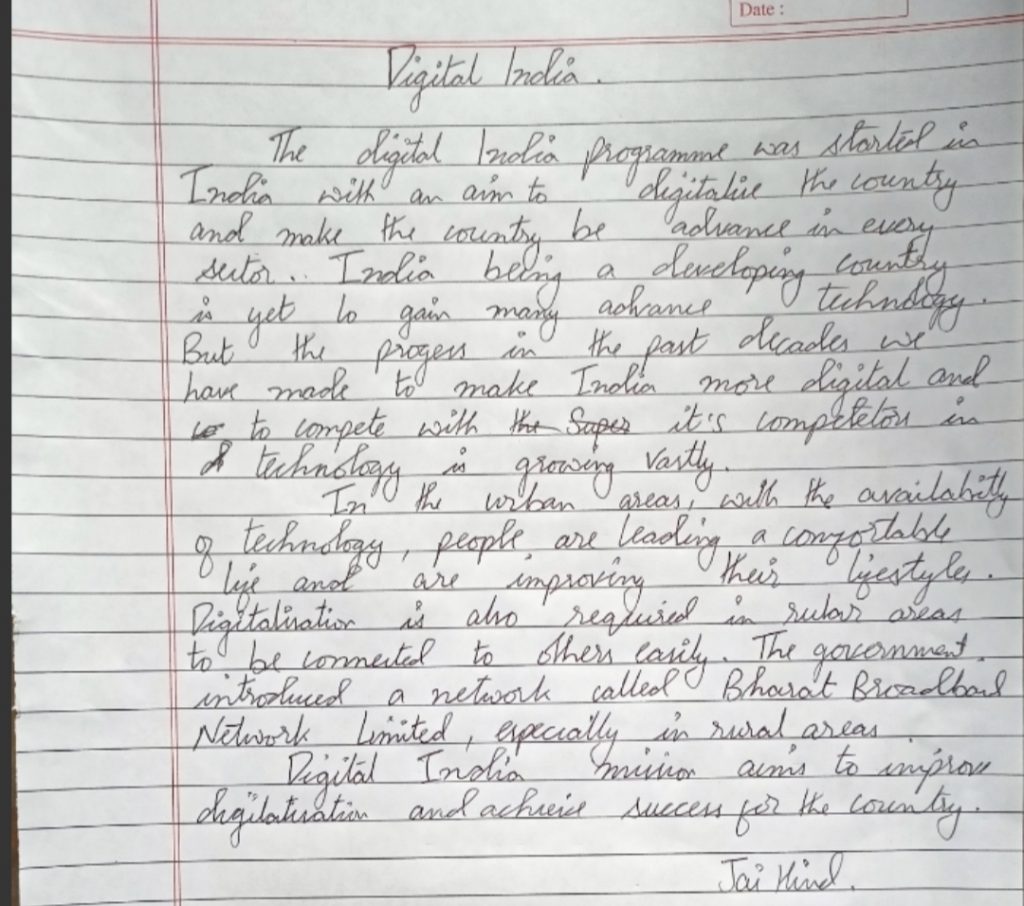 Date :
Digital India .
The digital India programme was started in
India with an aim to digitalise the country
and make the country be advance in every
sector.. India being a developing country
is yet to gain many advance technology.
But the progess in the past decades we
have made to make India more digital and
to compete with the Super it's competetors in
technology is growing vastly.
In the urban areas, with the availabitly
of technology, people are leading a comfortable
life and are improving their lifestyles.
Digitalisation is also required in rular areas
to be connected to others easily. The government
introduced a network called Bharat Broadband
Network Limited, especially in rural areas.
Digital India mission aims to improve
digilatisation and achieve success for the country.
Jai Hind.